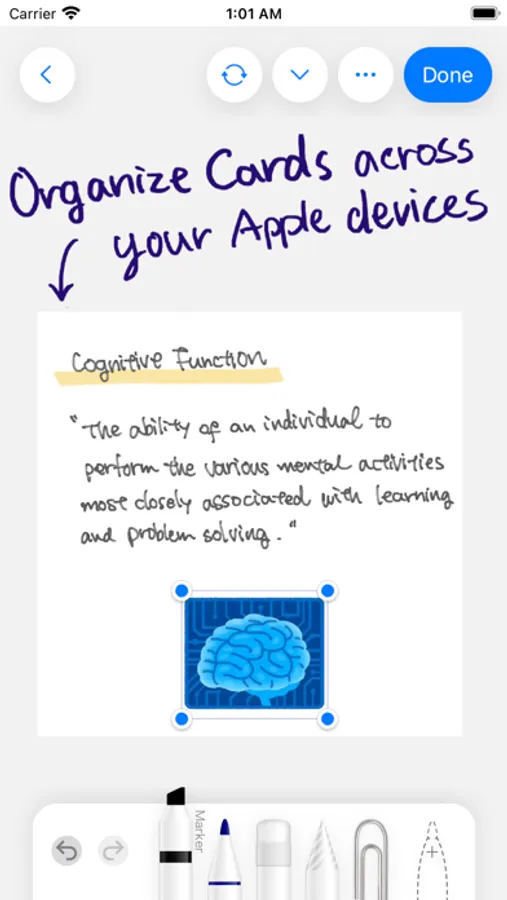 Carrier 1:01 AM
Done
Organize Cards across
your Apple devices
Cognitive Function
"The ability of an individual to
perform the various mental activities
most closely associated with learning
and problem solving."
Marker